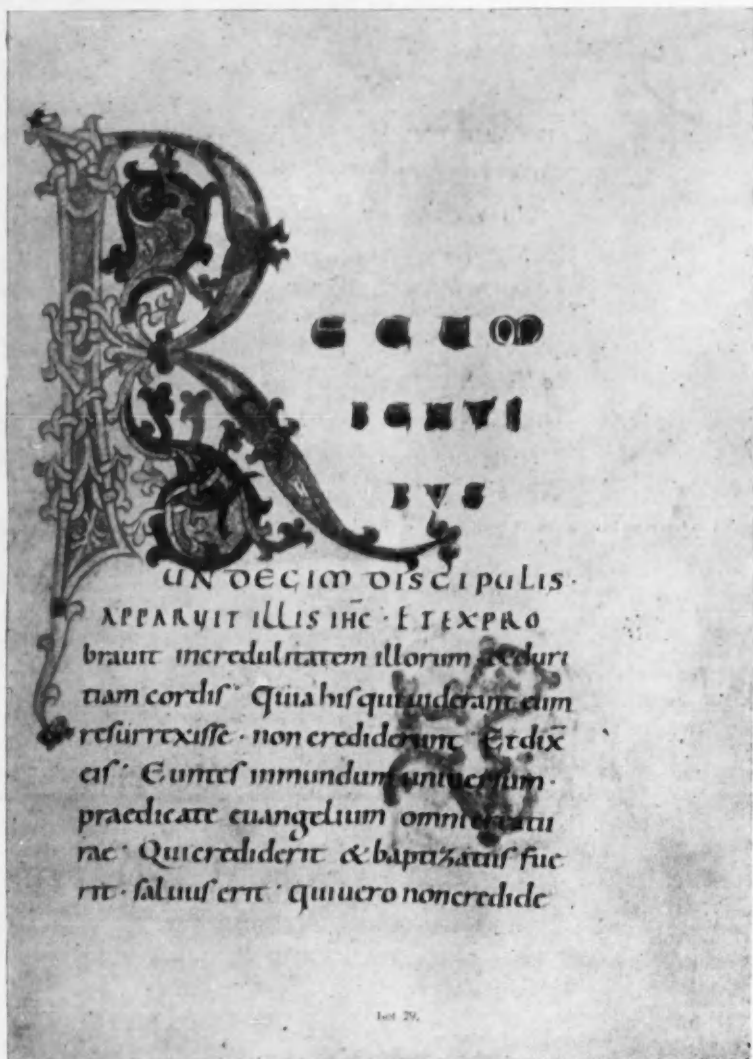 RECUM
BENTI
BVS
UNDECIM DISCIPULIS·
APPARUIT ILLIS IHC̄ · ET EXPRO
brauit incredulitatem illorum & duri
tiam cordis · Quia his qui uiderant eum
resurrexisse · non crediderunt · Et dix̄
eis · Euntes in mundum uniuersum ·
praedicate euangelium omni creatu
rae · Qui crediderit & baptizatus fue
rit · saluus erit · qui uero non credide
29.